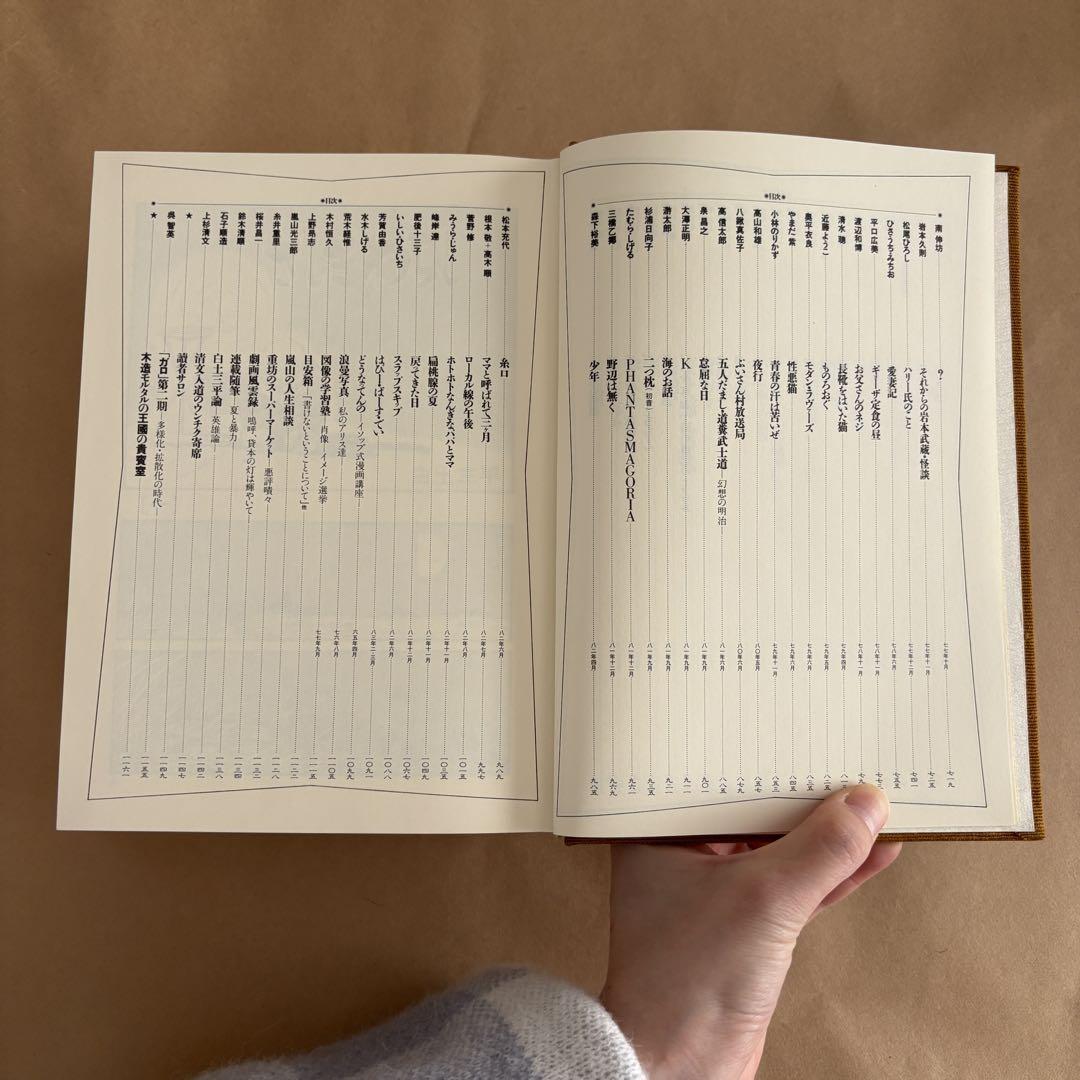 ＊目次＊
南伸坊 ? 七七年十月 七一九
岩本久則 それからの岩本武蔵・怪談 七七年十一月 七二五
松尾ひろし ハリー氏のこと 七七年十二月 七四一
ひさうちみちお 愛妻記 七八年六月 七五五
平口広美 ギョーザ定食の昼 七八年十一月
渡辺和博 お父さんのネジ 七八年十一月
清水聰 長靴をはいた猫 七九年四月
近藤ようこ ものろおぐ 七九年五月 八二五
奥平衣良 モダン・ラヴァーズ 七九年六月 八三五
やまだ紫 性悪猫 七九年六月 八四五
小林のりかず 青春の汗は苦いぜ 七九年十一月 八五三
高山和雄 夜行 八〇年五月 八五七
八鍬真佐子 ぶいさん村放送局 八〇年六月 八七九
高信太郎 五人だまし道糞武士道―幻想の明治― 八一年六月 八八五
泉昌之 怠屈な日 八一年九月 九〇一
大澤正明 K 八一年十二月 九一一
渤太郎 海のお話 八一年九月 九二一
杉浦日向子 二つ枕（初音） 八一年九月 九三五
たむらしげる PHANTASMAGORIA 八一年十二月 九六一
三橋乙揶 野辺は無く 八一年十二月 九六九
森下裕美 少年 八二年四月 九八五
＊目次＊
松本充代 糸口 八二年六月 九八九
根本敬＋高木順 ママと呼ばれて三ヶ月 八二年七月 九九七
菅野修 ローカル線の午後 八二年八月 一〇一五
みうらじゅん ホトホトなんぎなパパとママ 八二年十一月 一〇三五
峰岸達 扁桃腺の夏 八二年十一月 一〇四九
肥後十三子 戻ってきた日 八二年十二月 一〇六七
いしいひさいち スラップスキプ 八二年六月 一〇八八
芳賀由香 はひーばーすてい 八三年二・三月 一〇九一
水木しげる どうなってんの―イソップ式漫画講座― 六五年四月 一〇九九
荒木経惟 浪曼写真―私のアリス達― 七六年八月 一一〇五
木村恒久 図像の学習塾―肖像・イメージ選挙 七七年九月 一一一五
上野昻志 目安箱―「書けないということについて」他 一一二二
嵐山光三郎 嵐山の人生相談 一一二八
糸井重里 重坊のスーパーマーケット―悪評嘖々 一一三二
桜井昌一 劇画風雲録―嗚呼、貸本の灯は輝やいて― 一一三四
鈴木清順 連載随筆―夏と暴力― 一一三八
石子順造 白土三平論―英雄論― 一一四二
上杉清文 清文入道のウンチク寄席 一一四七
★ 讀者サロン 一一四九
呉智英 「ガロ」第二期―多様化・拡散化の時代― 一一五五
★ 木造モルタルの王國の貴賓室 一一六一